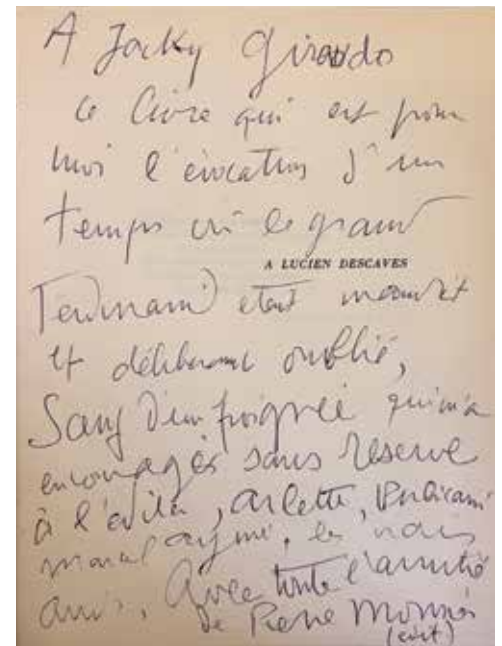 A Jacky Giraudo
ce livre qui est pour
moi l'évocation d'un
temps où le grand
A LUCIEN DESCAVES
Ferdinand était maudit
et délibérément oublié,
Sauf d'une poignée qui m'a
encouragés sans réserve
à l'éditer, Arlette,
marcel aymé, les vrais
amis, Avec toute l'amitié
de Pierre Monnier
(édit)